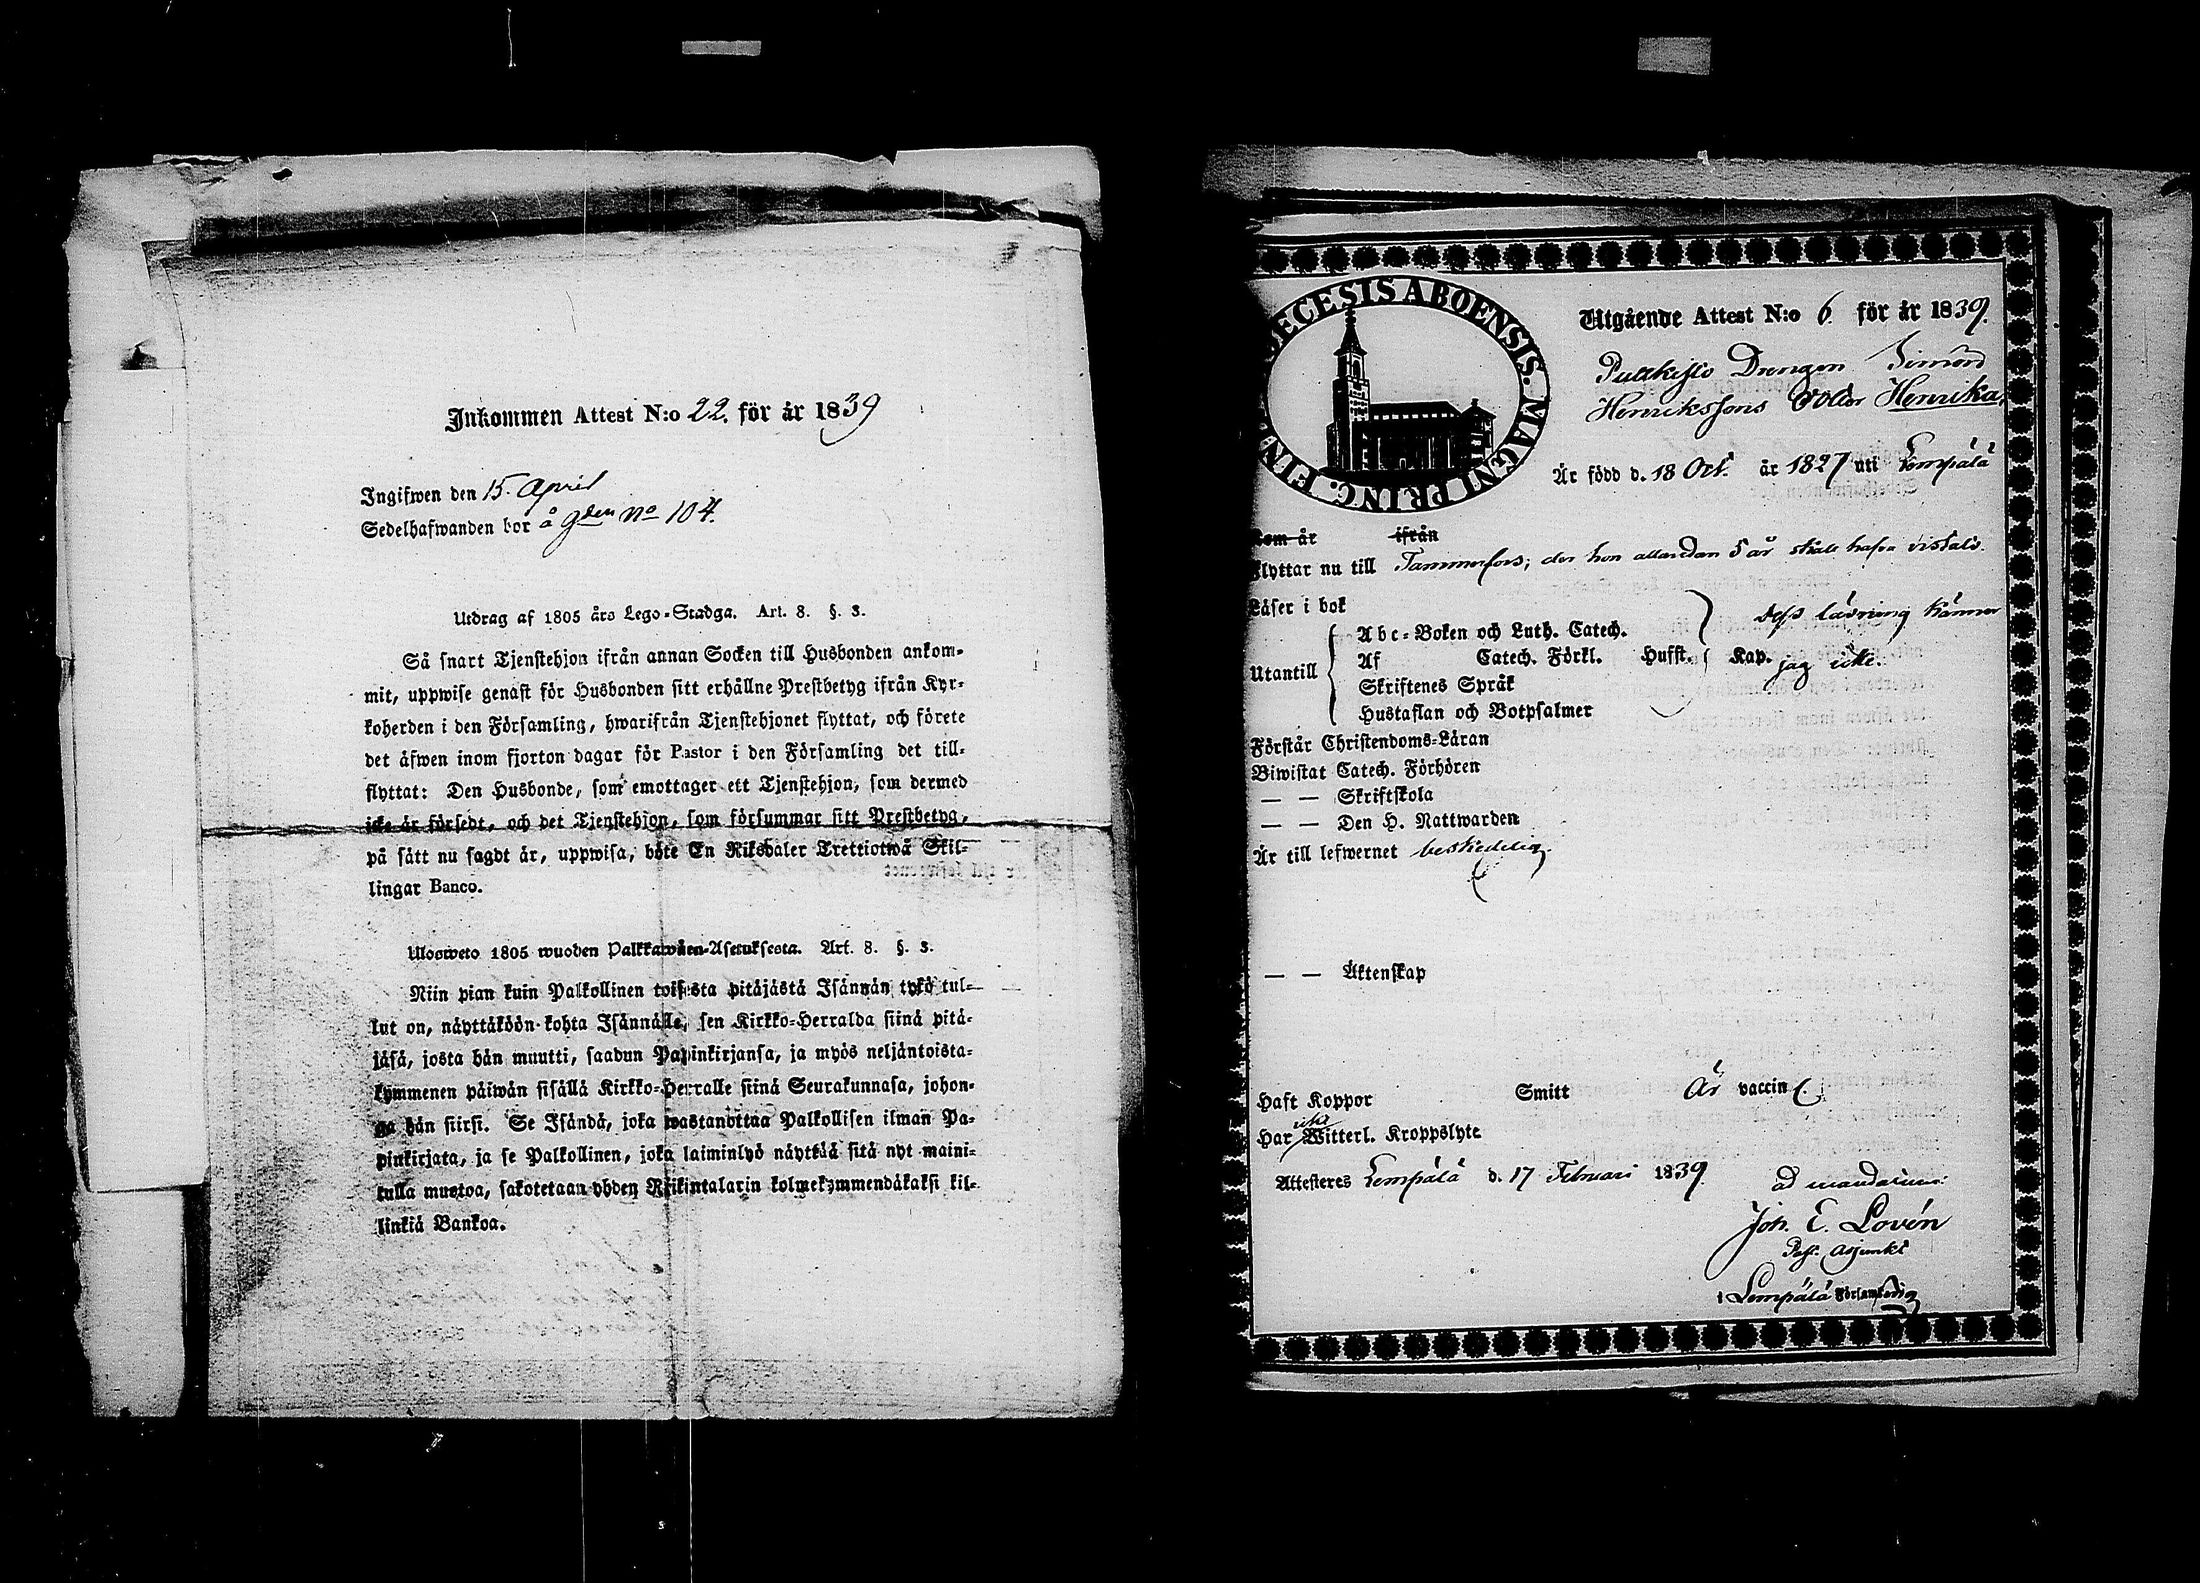 Inkommen Attest N:o 22. för år 1839
Ingifwen den 15. April
Sedelhafwanden bor å gden No 104.
Utdrag af 1805 års Lego-Stadga. Art. 8. §. 3.
Så snart Tjenstehjon ifrån annan Socken till Husbonden ankom-
mit, uppwise genast för Husbonden sitt erhållne Prestbetyg ifrån Kyr-
koherden i den Församling, hwarifrån Tjenstehjonet flyttat, och förete
det äfwen inom fjorton dagar för Pastor i den Församling det till-
flyttat: Den Husbonde, som emottager ett Tjenstehjon, som dermed
icke är försedt, och det Tjenstehjon, som försummar sitt Prestbetyg,
på sätt nu sagdt är, uppwisa, böte En Riksdaler Trettiotwå Skil-
lingar Banco.
Ulosweto 1805 wuoden Palkkawäen-Asetuksesta. Art. 8. §. 3.
Niin pian kuin Palkollinen toisesta pitäjästä Isännän tykö tul-
lut on, näyttäköön kohta Isännälle, sen Kirkko-Herralda siinä pitä-
jäsä, josta hän muutti, saadun Papinkirjansa, ja myös neljäntoista-
kymmenen päiwän sisällä Kirkko-Herralle siinä Seurakunnasa, johon-
ga hän siirsi. Se Isändä, joka wastanottaa Palkollisen ilman Pa-
pinkirjata, ja se Palkollinen, joka laiminlyö näyttää sitä nyt maini-
tulla muotoa, sakotetaan yhden Riikintalarin kolmekymmendäkaksi kil-
linkiä Bankoa.
DIECESIS ABOENSIS. MAGNI PRINC. FINL.
Utgående Attest N:o 6. för år 1839.
Drengen Simon
Henrikssons dotter Henrika,
Är född d. 18 Oct. år 1827 uti Lempälä
Kom år ifrån
Flyttar nu till Tammerfors, der hon allaredan 5 år skall hafva vistats.
Läser i bok
Abc-Boken och Luth. Catech. Dess läsning känner
Utantill Af Catech. Förkl. Husst. Kap. jag icke.
Skriftenes Språk
Hustaflan och Botpsalmer
Förstår Christendoms-Läran
Biwistat Catech. Förhören
— — Skriftskola
— — Den H. Nattwarden
Är till lefwernet beskedelig.
— — Äktenskap
Haft Koppor Smitt Är vaccin.
Har icke Witterl. Kroppslyte
Attesteres Lempälä d. 17 Februari 1839.
ad mandatum:
Joh. E. Lovén
Past. Adjunkt
i Lempälä Församling